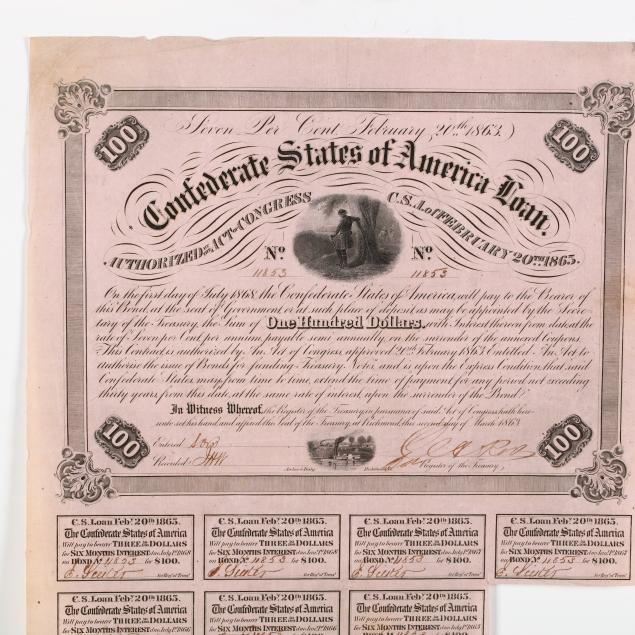 100
(Seven Per Cent, February 20th 1863.)
100
Confederate States of America Loan.
AUTHORIZED BY THE ACT OF CONGRESS C.S.A. of FEBRUARY 20TH 1863.
No No
11853 11853
On the first day of July 1868 the Confederate States of America, will pay to the Bearer of
this Bond, at the seat of Government or at such place of deposit as may be appointed by the Secre-
tary of the Treasury, the Sum of One Hundred Dollars, with Interest thereon from date, at the
rate of Seven per Cent per annum, payable semi annually, on the surrender of the annexed Coupons.
This Contract is authorized by An Act of Congress, approved 20th February 1863, Entitled An Act to
authorise the issue of Bonds for funding Treasury Notes and is upon the Express Condition, that said
Confederate States may from time to time, extend the time of payment for any period not exceeding
thirty years from this date, at the same rate of interest, upon the surrender of the Bond.
In Witness Whereof, the Register of the Treasury, in pursuance of said Act of Congress, hath here-
unto set his hand and affixed the Seal of the Treasury, at Richmond, this second day of March 1863.
100
Entered
Recorded
Register of the Treasury.
100
C.S. Loan Feby. 20th 1863.
The Confederate States of America
Will pay to bearer THREE 50/100 DOLLARS
for SIX MONTHS INTEREST due July 1st 1868
on BOND No 11853 for $100.
for Regr of Treasy
C.S. Loan Feby. 20th 1863.
The Confederate States of America
Will pay to bearer THREE 50/100 DOLLARS
for SIX MONTHS INTEREST due Jany 1st 1868
on BOND No 11853 for $100.
for Regr of Treasy
C.S. Loan Feby. 20th 1863.
The Confederate States of America
Will pay to bearer THREE 50/100 DOLLARS
for SIX MONTHS INTEREST due July 1st 1867
on BOND No 11853 for $100.
for Regr of Treasy
C.S. Loan Feby. 20th 1863.
The Confederate States of America
Will pay to bearer THREE 50/100 DOLLARS
for SIX MONTHS INTEREST due Jany 1st 1867
on BOND No 11853 for $100.
for Regr of Treasy
C.S. Loan Feby. 20th 1863.
The Confederate States of America
Will pay to bearer THREE 50/100 DOLLARS
for SIX MONTHS INTEREST due July 1st 1866
C.S. Loan Feby. 20th 1863.
The Confederate States of America
Will pay to bearer THREE 50/100 DOLLARS
for SIX MONTHS INTEREST due Jany 1st 1866
C.S. Loan Feby. 20th 1863.
The Confederate States of America
Will pay to bearer THREE 50/100 DOLLARS
for SIX MONTHS INTEREST due July 1st 1865